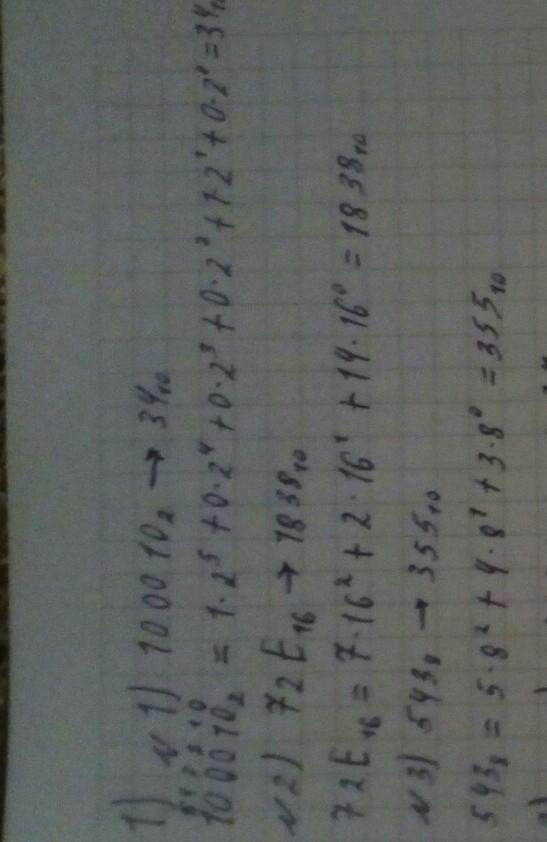 1) N 1) 100010₂ → 34₁₀
5 4 3 2 1 0
100010₂ = 1·2⁵+0·2⁴+0·2³+0·2²+1·2¹+0·2⁰=34₁₀
N2) 72E₁₆ → 1838₁₀
72E₁₆ = 7·16²+2·16¹+14·16⁰=1838₁₀
N3) 543₈ → 355₁₀
543₈ = 5·8²+4·8¹+3·8⁰=355₁₀